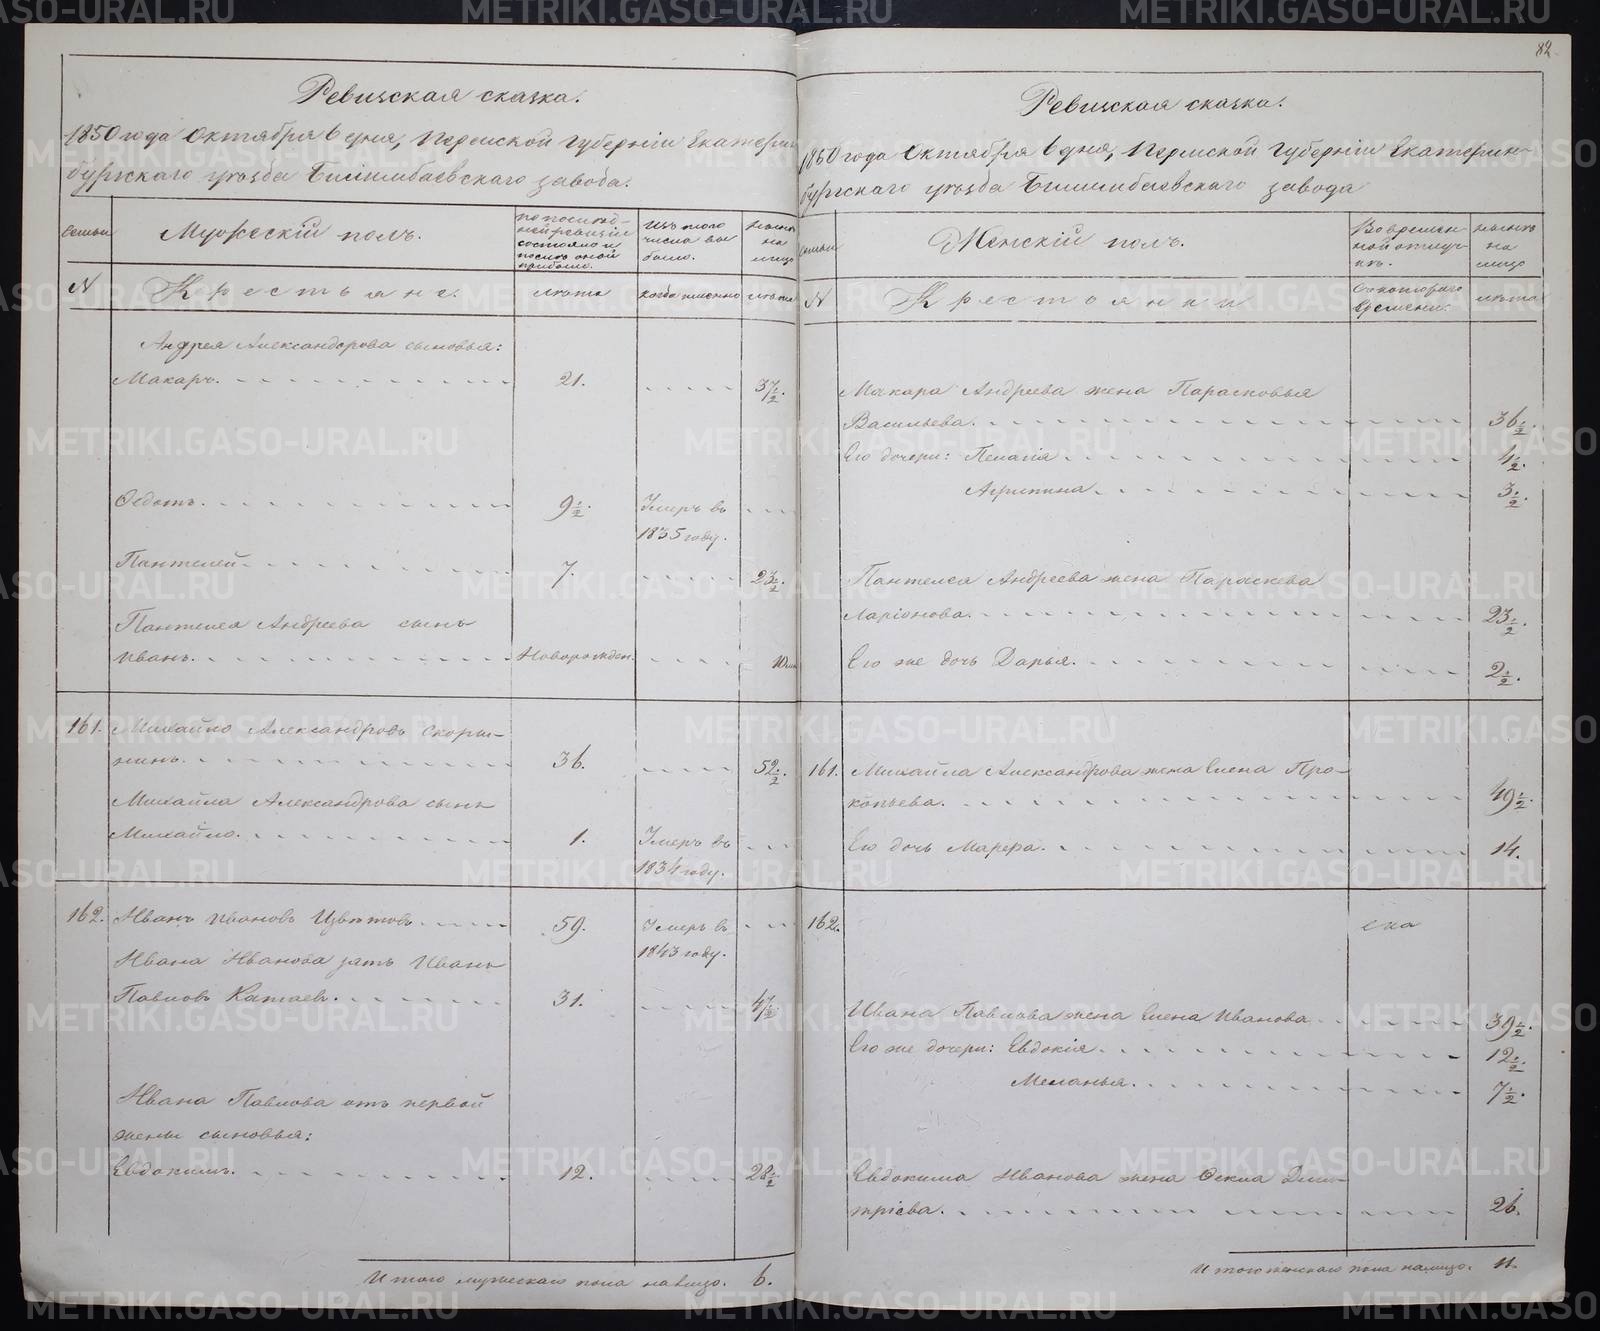 82
Ревизская сказка.
1850 года Октября 6 дня, Пермской Губерніи Екатерин-
бургскаго уѣзда Билимбаевскаго завода.
Семьи
Мужескій полъ.
по послѣд-
ней ревизіи
состояло и
послѣ оной
прибыло.
Изъ того
числа вы
было.
нынѣ
на
лицо
N
Крестьяне.
лѣта
когда именно
лѣта
Андрея Александрова сыновья:
Макаръ. 21. 37 1/2.
Федотъ. 9 1/2. Умеръ въ
1835 году.
Пантелей 7. 23 1/2.
Пантелея Андреева сынъ
Иванъ. Новорожден. 10
161. Михайло Александровъ Скоры-
нинъ. 36. 52 1/2.
Михайла Александрова сынъ
Михайло. 1. Умеръ въ
1834 году.
162. Иванъ Ивановъ Цвѣтовъ 59. Умеръ въ
1843 году.
Ивана Иванова зять Иванъ
Павловъ Катаевъ. 31. 47 1/2
Ивана Павлова отъ первой
жены сыновья:
Евдокимъ. 12. 28 1/2
Итого мужескаго пола налицо. 6.
Ревизская сказка.
1850 года Октября 6 дня, Пермской Губерніи Екатерин-
бургскаго уѣзда Билимбаевскаго завода
Семьи
Женскій полъ.
Во времен-
ной отлуч-
кѣ.
нынѣ
на
лицо
N
Крестьянки
Съ котораго
времени.
лѣта
Макара Андреева жена Парасковья
Васильева. 36 1/2.
Его дочери: Пелагія 4 1/2.
Агрипина. 3 1/2.
Пантелея Андреева жена Параскева
Ларіонова. 23 1/2.
Его же дочь Дарья. 2 1/2.
161. Михайла Александрова жена Елена Про-
копьева. 49 1/2.
Его дочь Марфа. 14.
162.
Ивана Павлова жена Елена Иванова 39 1/2.
Его же дочери: Евдокія. 12 1/2.
Меланья. 7 1/2.
Евдокима Иванова жена Фекла Дми-
тріева. 26.
Итого женскаго пола налицо. 11.
METRIKI.GASO-URAL.RU